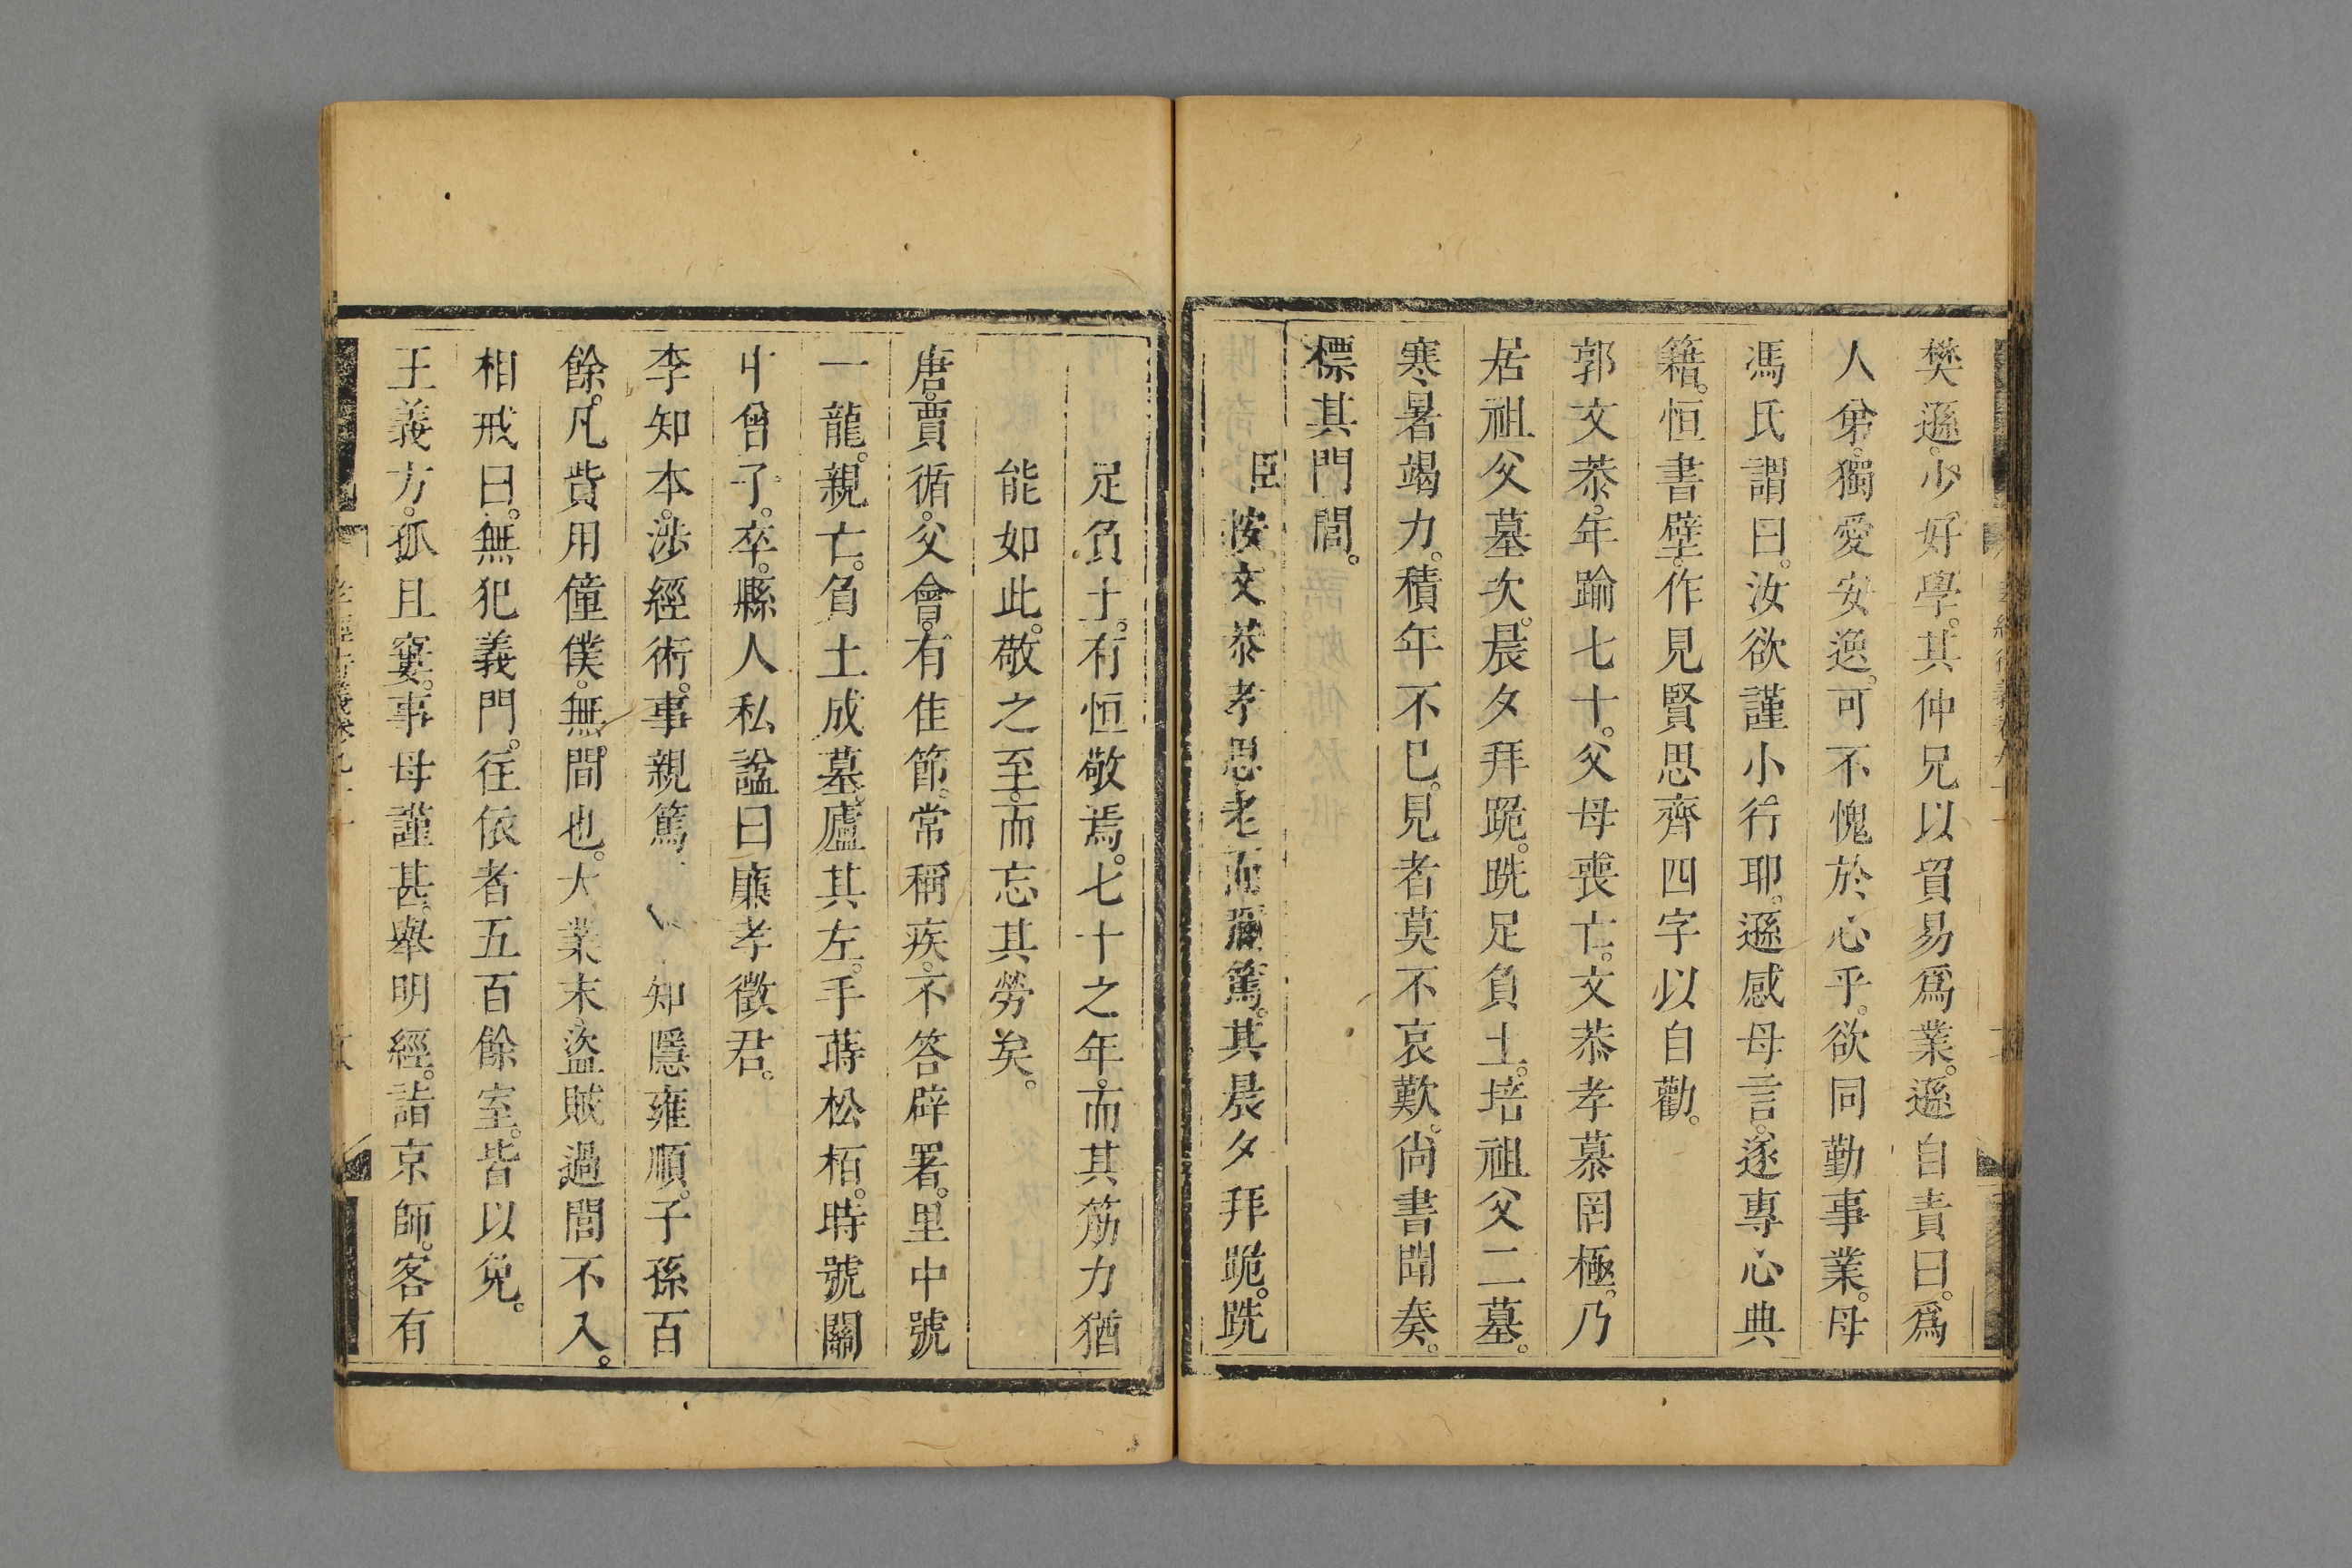 樊遜。少好學。其仲兄以貿易爲業。遜自責曰。爲
人弟。獨愛安逸。可不愧於心乎。欲同勤事業。母
馮氏謂曰。汝欲謹小行耶。遜感母言。遂專心典
籍。恒書壁。作見賢思齊四字以自勸。
郭文恭。年踰七十。父母喪亡。文恭孝慕罔極。乃
居祖父墓次。晨夕拜跪。跣足負土。培祖父二墓。
寒暑竭力。積年不已。見者莫不哀歎。尙書聞奏。
標其門閭。
臣按文恭孝思老而彌篤。其晨夕拜跪。跣
足負土。有恒敬焉。七十之年。而其筋力猶
能如此。敬之至。而忘其勞矣。
唐。賈循。父會。有佳節。常稱疾。不答辟署。里中號
一龍。親亡。負土成墓。廬其左。手蒔松栢。時號關
中曾子。卒。縣人私諡曰廉孝徵君。
李知本。涉經術。事親篤 知隱雍順。子孫百
餘。凡貲用僮僕。無間也。大業末。盜賊過閭不入。
相戒曰。無犯義門。往依者五百餘室。皆以免。
王義方。孤且窶。事母謹甚。舉明經。詣京師。客有